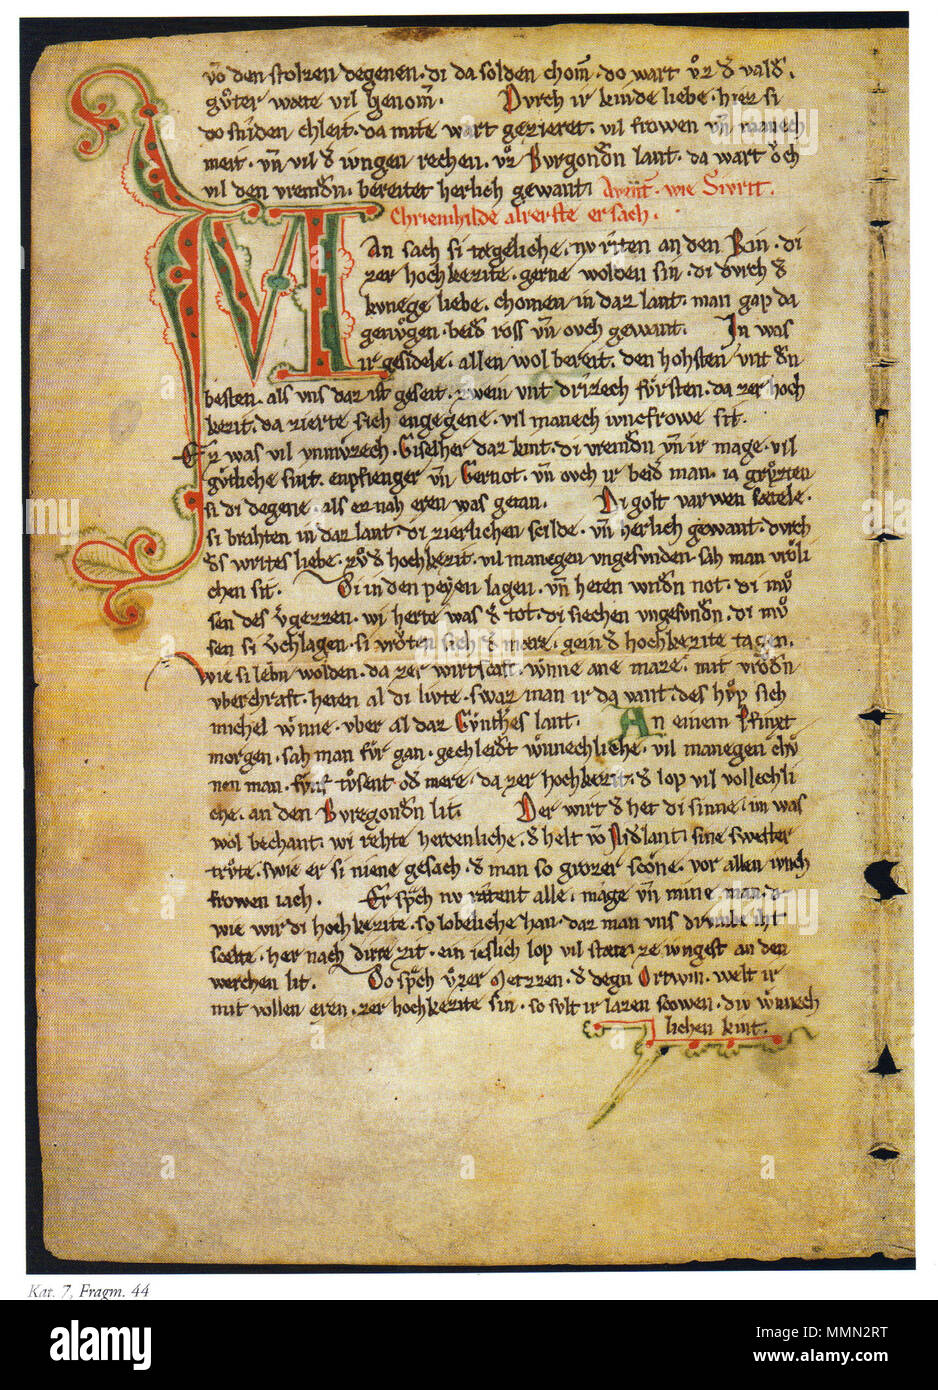 vō den stolzen degenen. di da solden chom̄. do wart vͦz d̄ vald.
gvͦter wæte vil genom̄. Dvrch ir kinde liebe. hiez si
do sniden chleit. da mite wart gezieret. vil frowen vn̄ manech
meit. vn̄ vil d̄ ivngen rechen. vͦz Bvrgondn̄ lant. da wart ovch
vil den vremdn̄. bereitet herlich gewant. wie Sivrit.
Chriemhilde alreste ersach.
MAn sach si tægeliche. nv riten an den Rin. di
zer hochkezite. gerne wolden sin. di dvrch d̄
kvnege liebe. chomen in daz lant. man gap da
genvͦgen. beid̄ ross vn̄ ovch gewant. In was
ir gesidele. allen wol bereit. den hohsten vnt dn̄
besten. als vns daz ist geseit. zwein vnt drizech fvͤrsten. da zer hoch
kezit. da zierte sich engegene. vil manech ivncfrowe sit.
Ez was vil vnmvͤzech. Giselher daz kint. di vremdn̄ vn̄ ir mage. vil
gvͤtliche sint. enpfienger vn̄ Gernot. vn̄ ovch ir beid̄ man. ia grvͤzten
si di degene. als ez nah eren was getan. Di golt varwen sætele.
si brahten in daz lant. di zierlichen scilde. vn̄ herlich gewant. dvrch
d̄s wirtes liebe. zvͦ d̄ hochkezit. vil manegen vngesvnden. sah man vrͦli
chen sit. Di in den peyen lagen. vn̄ heten wndn̄ not. di mvͦ
sen des v̄gezzen. wi herte was d̄ tot. di siechen vngesvndn̄. di mvͦ
sen si v̄chlagen. si vrͦten sich d̄ mære. gein d̄ hochkezite tagen.
wie si lebn̄ wolden. da zer wirtscaft. wnne ane maze. mit vrͦdn̄
vberchraft. heten al di livte. swaz man ir da vant. des hvͦp sich
michel wnne. vber al daz Gvnthes lant. An einem Pfinxt
morgen. sah man fvͤr gan. gechleidt wnnechliche. vil manegen chvͤ
nen man. fvnf tvͦsent od̄ mere. da zer hochkezit. d̄ lop vil vollechli
che. an den Bvregondn̄ lit. Der wirt d̄ het di sinne. im was
wol bechant. wi rehte hercenliche. d̄ helt vō Nid̄lant. sine swester
trvͦte. swie er si niene gesach. d̄ man so grozer scone. vor allen ivnch
frowen iach. Er sp̄ch nv ratent alle. mage vn̄ mine man.
wie wir di hochkezite. so lobeliche han. daz man vns darvmbe iht
scelte. her nach dirre zit. ein ieslich lop vil stæte. ze ivngest an den
werchen lit. Do sp̄ch vͦzer Metzzen. d̄ degn̄ Ortwin. welt ir
mit vollen eren. zer hochkezite sin. so svlt ir lazen scowen. div wnnech
lichen kint.
Kat. 7, Fragm. 44
alamy
Image ID: MMN2RT
www.alamy.com